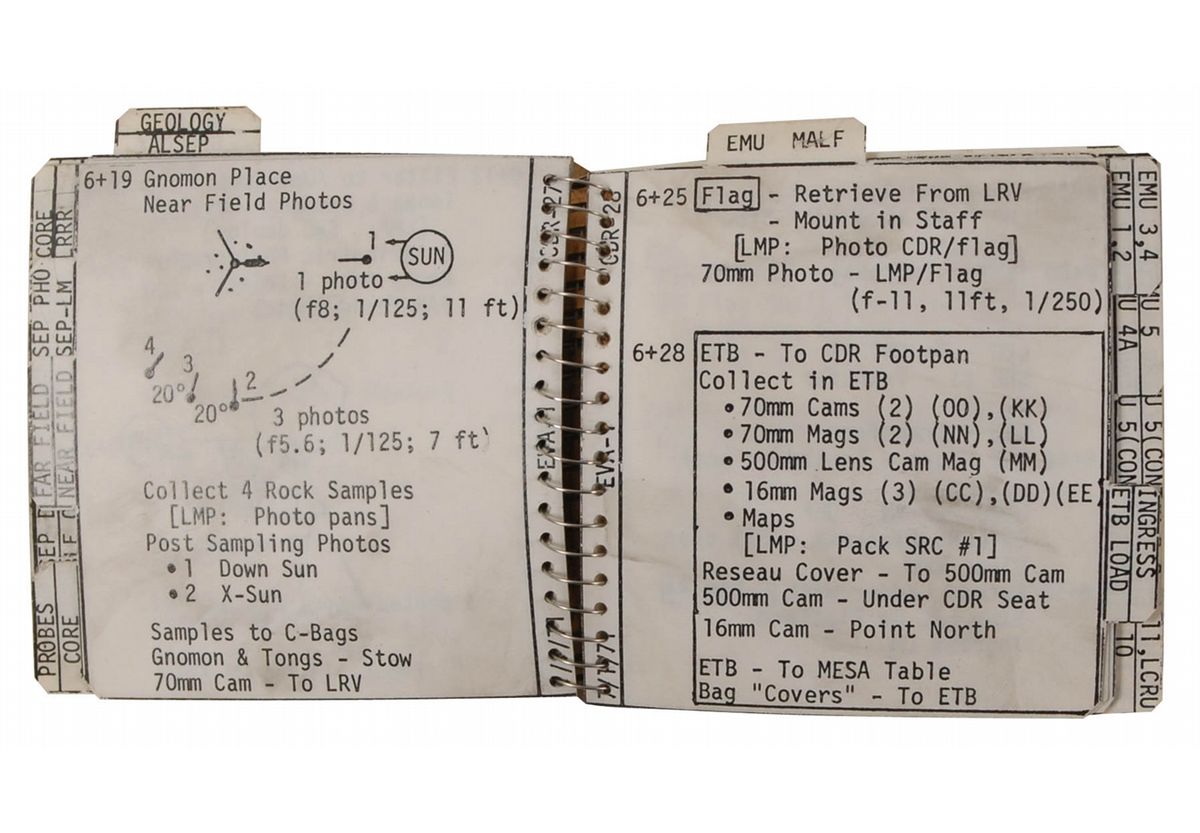 GEOLOGY
ALSEP
6+19 Gnomon Place
Near Field Photos
1
SUN
1 photo
(f8; 1/125; 11 ft)
4
3
20°
2
20°
3 photos
(f5.6; 1/125; 7 ft)
Collect 4 Rock Samples
[LMP: Photo pans]
Post Sampling Photos
•1 Down Sun
•2 X-Sun
Samples to C-Bags
Gnomon & Tongs - Stow
70mm Cam - To LRV
CORE
LRRR
SEP PHO
SEP-LM
FAR FIELD
NEAR FIELD
PROBES
CORE
CDR-27
EVA-1
CDR-28
EVA-1
EMU MALF
6+25 Flag - Retrieve From LRV
- Mount in Staff
[LMP: Photo CDR/flag]
70mm Photo - LMP/Flag
(f-11, 11ft, 1/250)
6+28 ETB - To CDR Footpan
Collect in ETB
• 70mm Cams (2) (OO),(KK)
• 70mm Mags (2) (NN),(LL)
• 500mm Lens Cam Mag (MM)
• 16mm Mags (3) (CC),(DD)(EE)
• Maps
[LMP: Pack SRC #1]
Reseau Cover - To 500mm Cam
500mm Cam - Under CDR Seat
16mm Cam - Point North
ETB - To MESA Table
Bag "Covers" - To ETB
EMU 1,2
EMU 3,4
U 4A
U 5
U 5(CON
U 5(CON
ETB LOAD
INGRESS
10
11,LCRU